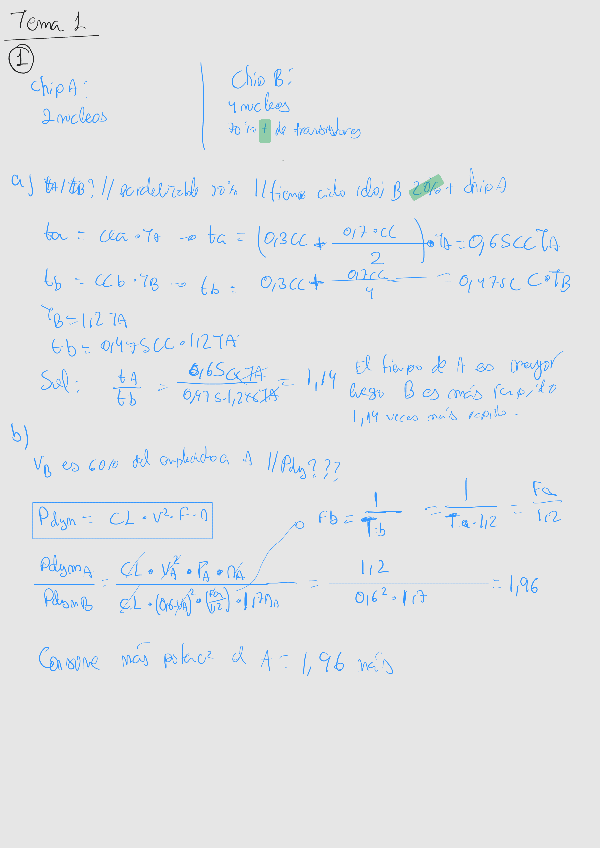 Tema 1
1
Chip A:
2 nucleos
Chip B:
4 nucleos
70% + de transistores
a) tA/tB? // paralelizable 70% // tiempo ciclo reloj B 20% + chip A
ta = CCa · TA → ta = (0,3CC + 0,7·CC / 2) · TA = 0,65CC TA
tb = CCb · TB → tb = 0,3CC + 0,7CC / 4 = 0,475C C·TB
TB = 1,2 TA
tb = 0,475CC · 1,2TA
Sol: tA / tb = 0,65CC TA / 0,475·1,2CC TA = 1,14
El tiempo de A es mayor
luego B es más rápido
1,14 veces más rápido.
b)
VB es 60% del empleado a A // Pdyn???
Pdyn = CL · V² · F · n
Fb = 1 / Tb = 1 / Ta·1,2 = Fa / 1,2
PdynA / PdynB = CL · VA² · FA · nA / CL · (0,6·VA)² · (Fa / 1,2) · 1,7nA = 1,2 / 0,6² · 1,7 = 1,96
Consume más potac² el A = 1,96 más